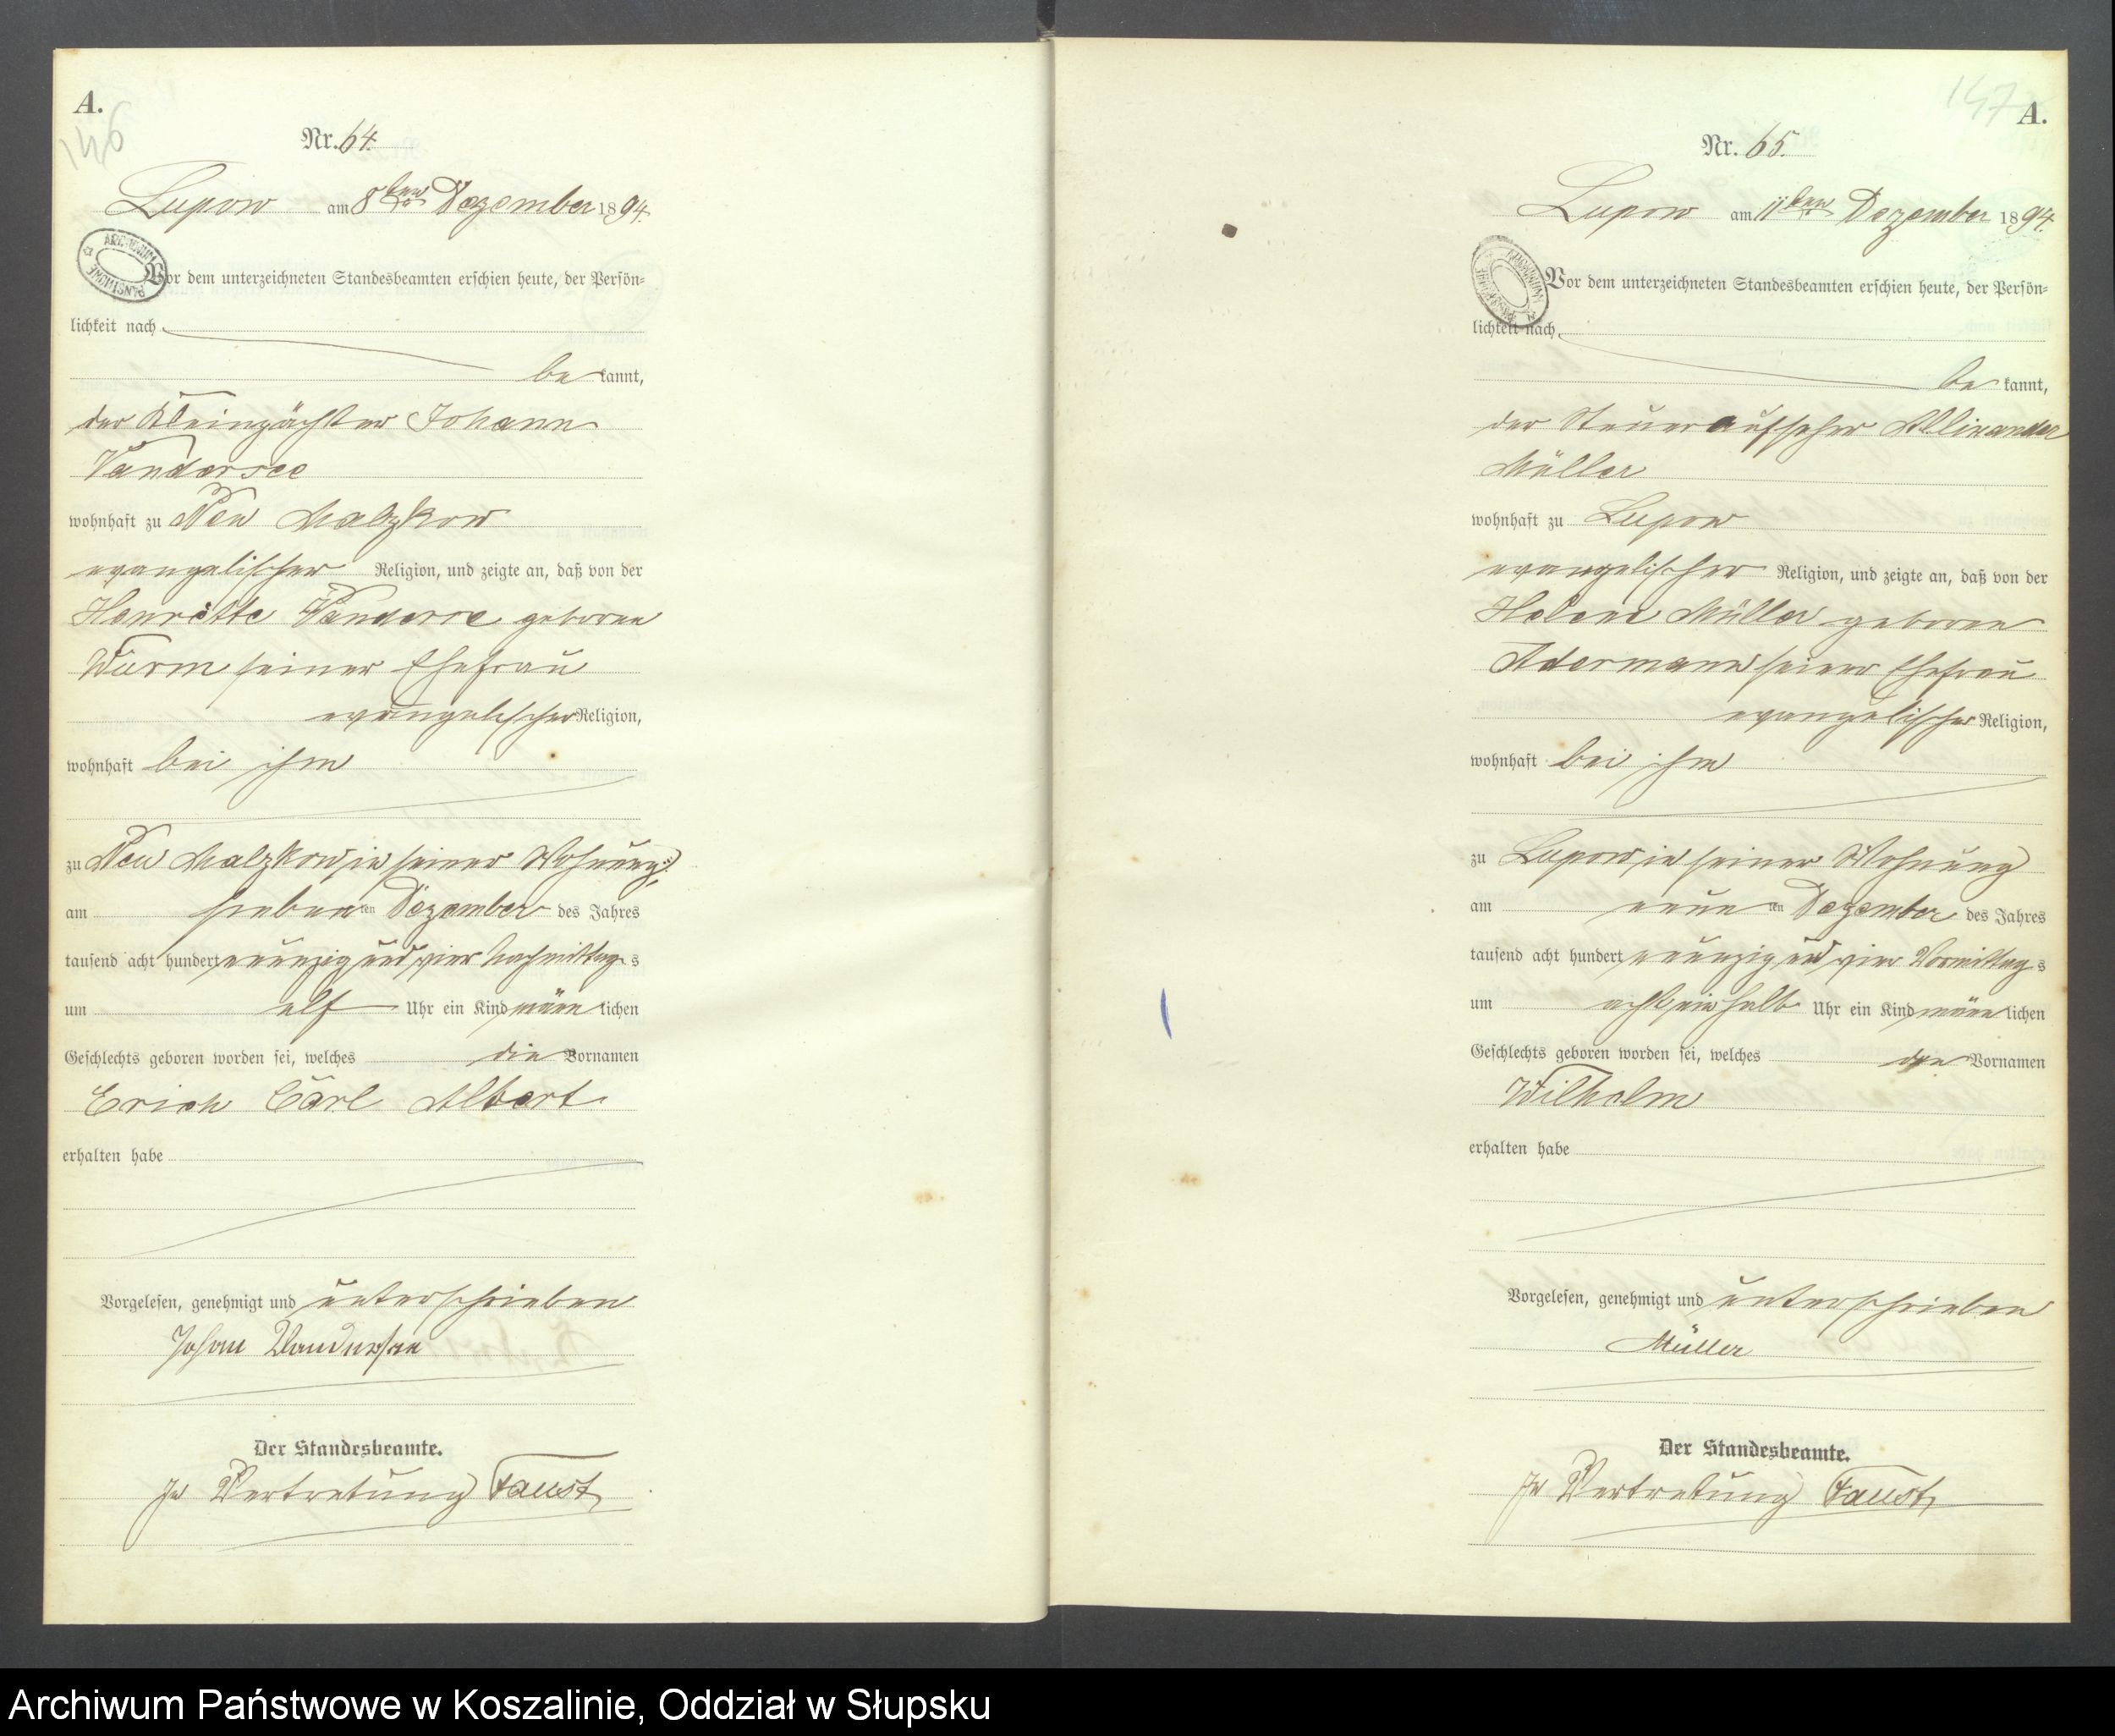 A.
146
Nr. 64.
Lupow am 8ten Dezember 1894.
ARCHIWUM PAŃSTWOWE
Vor dem unterzeichneten Standesbeamten erschien heute, der Persön-
lichkeit nach
be kannt,
der Kleinpächter Johann
Vandersee
wohnhaft zu Neu Malzkow
evangelischer Religion, und zeigte an, daß von der
Henrätte geboren
Wurm seiner Ehefrau
evangelischer Religion,
wohnhaft bei ihm
zu Neu Malzkow, in seiner Wohnung,
am siebenten Dezember des Jahres
tausend acht hundert neunzig und vier Nachmittags
um elf Uhr ein Kind männlichen
Geschlechts geboren worden sei, welches die Vornamen
Erich Carl Albert
erhalten habe
Vorgelesen, genehmigt und unterschrieben
Johan Vandersee
Der Standesbeamte.
In Vertretung Faust
147
A.
Nr. 65.
Lupow am 11ten Dezember 1894.
ARCHIWUM PAŃSTWOWE
Vor dem unterzeichneten Standesbeamten erschien heute, der Persön-
lichkeit nach
be kannt,
der Steueraufseher
Müller
wohnhaft zu Lupow
evangelischer Religion, und zeigte an, daß von der
Helene Müller geboren
Adermann seiner Ehefrau
evangelischer Religion,
wohnhaft bei ihm
zu Lupow, in seiner Wohnung
am neunten Dezember des Jahres
tausend acht hundert neunzig und vier Vormittags
um acht ein halb Uhr ein Kind männlichen
Geschlechts geboren worden sei, welches den Vornamen
Wilhelm
erhalten habe
Vorgelesen, genehmigt und unterschrieben
Müller
Der Standesbeamte.
In Vertretung Faust
Archiwum Państwowe w Koszalinie, Oddział w Słupsku